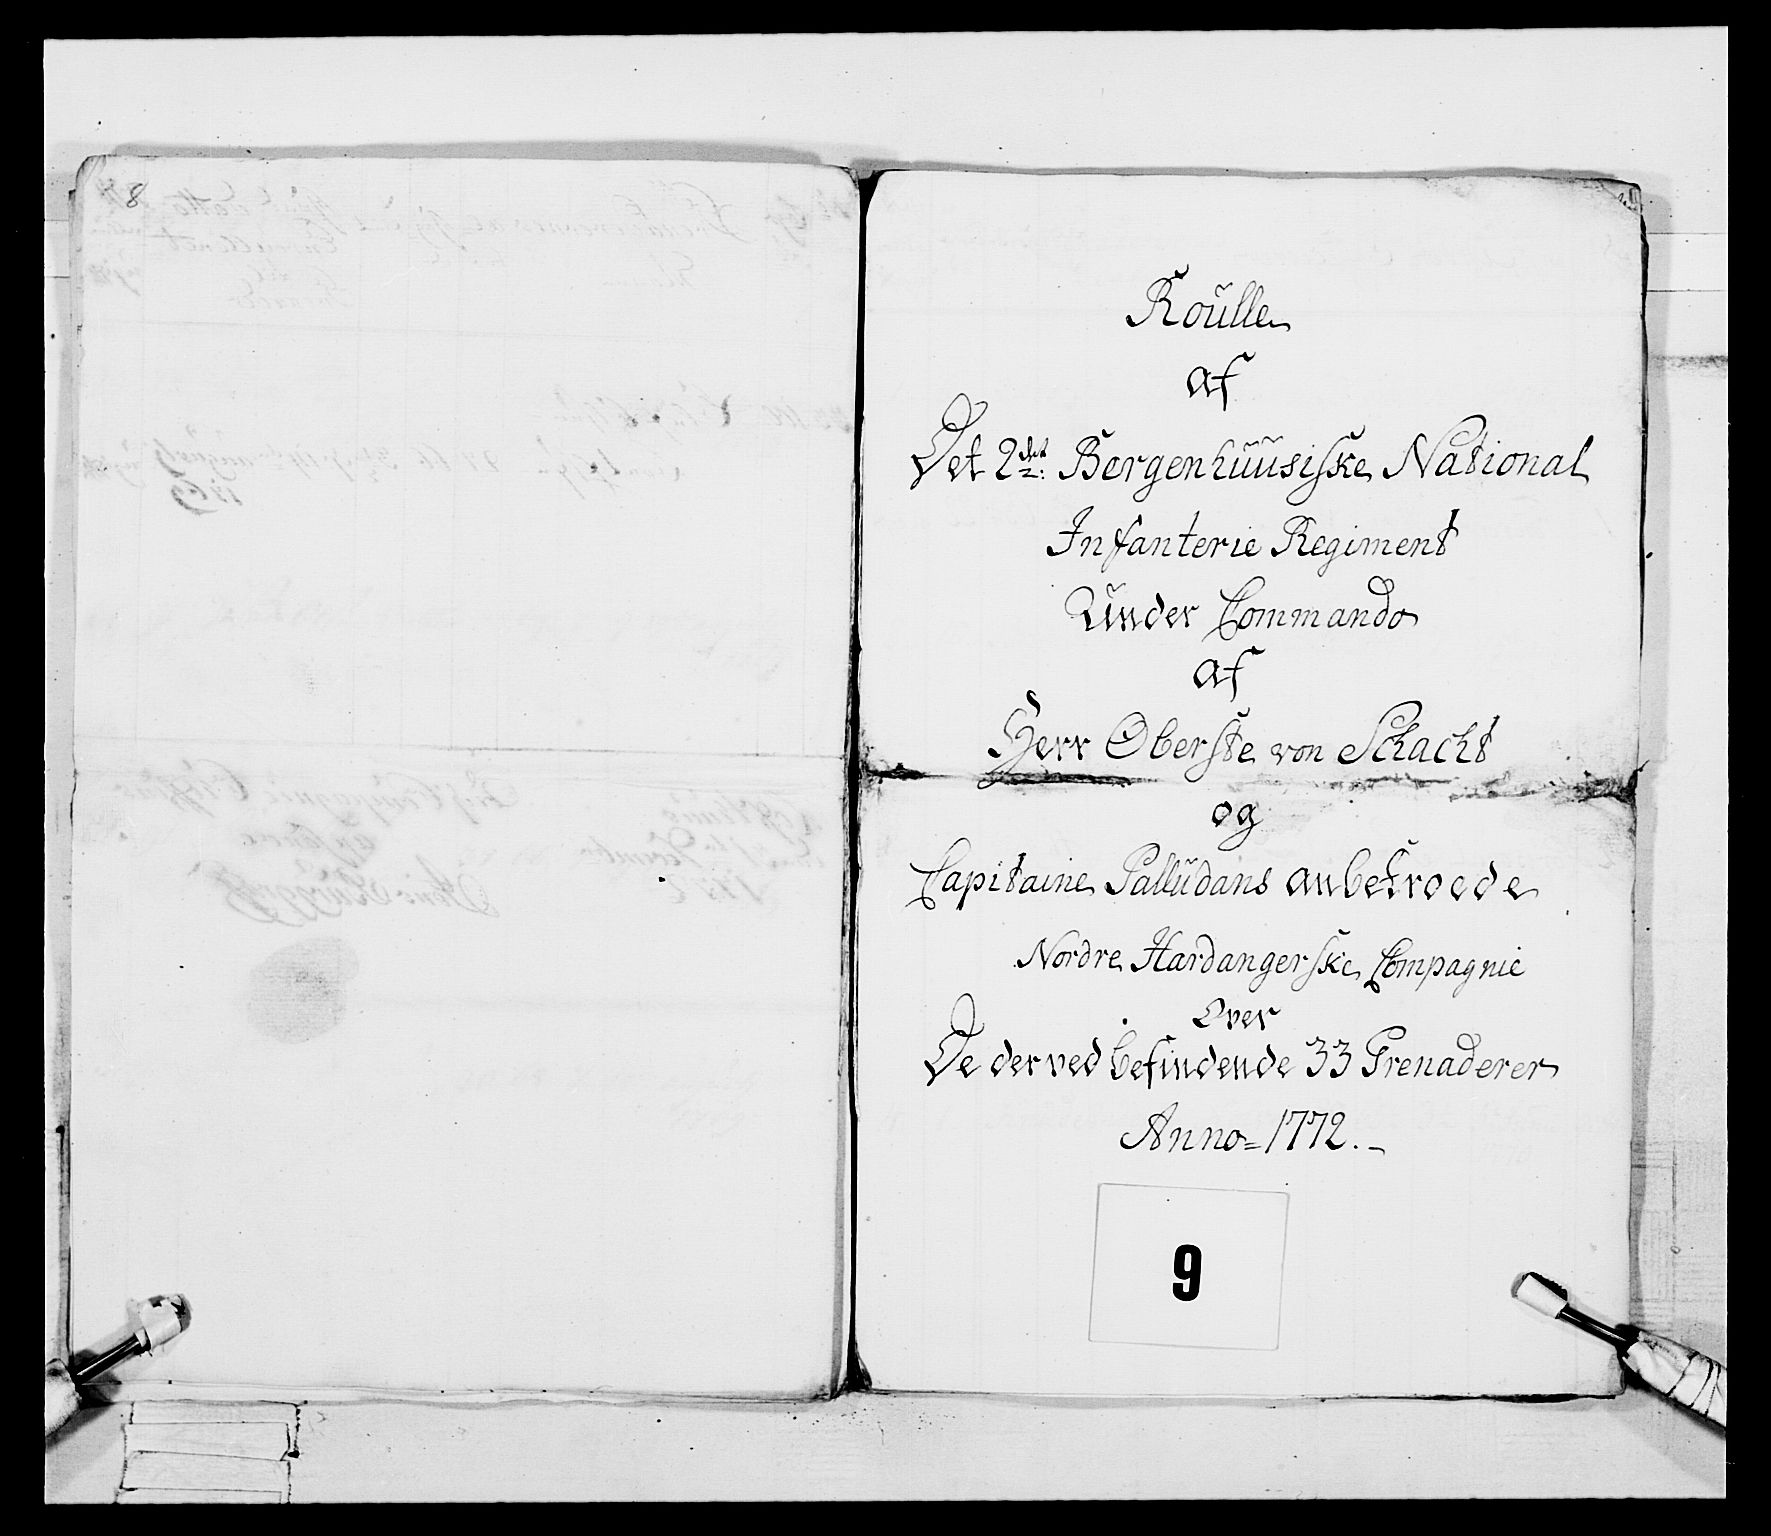 8
Roulle
af
Det 2det Bergenhuusiske National
Infanterie Regiment
Under Commando
af
Herr Oberste von Schacht
og
Capitaine Palludans anbetroede
Nordre Hardangerske Compagnie
Over
De derved befindende 33 Grenaderer
Anno = 1772.
9